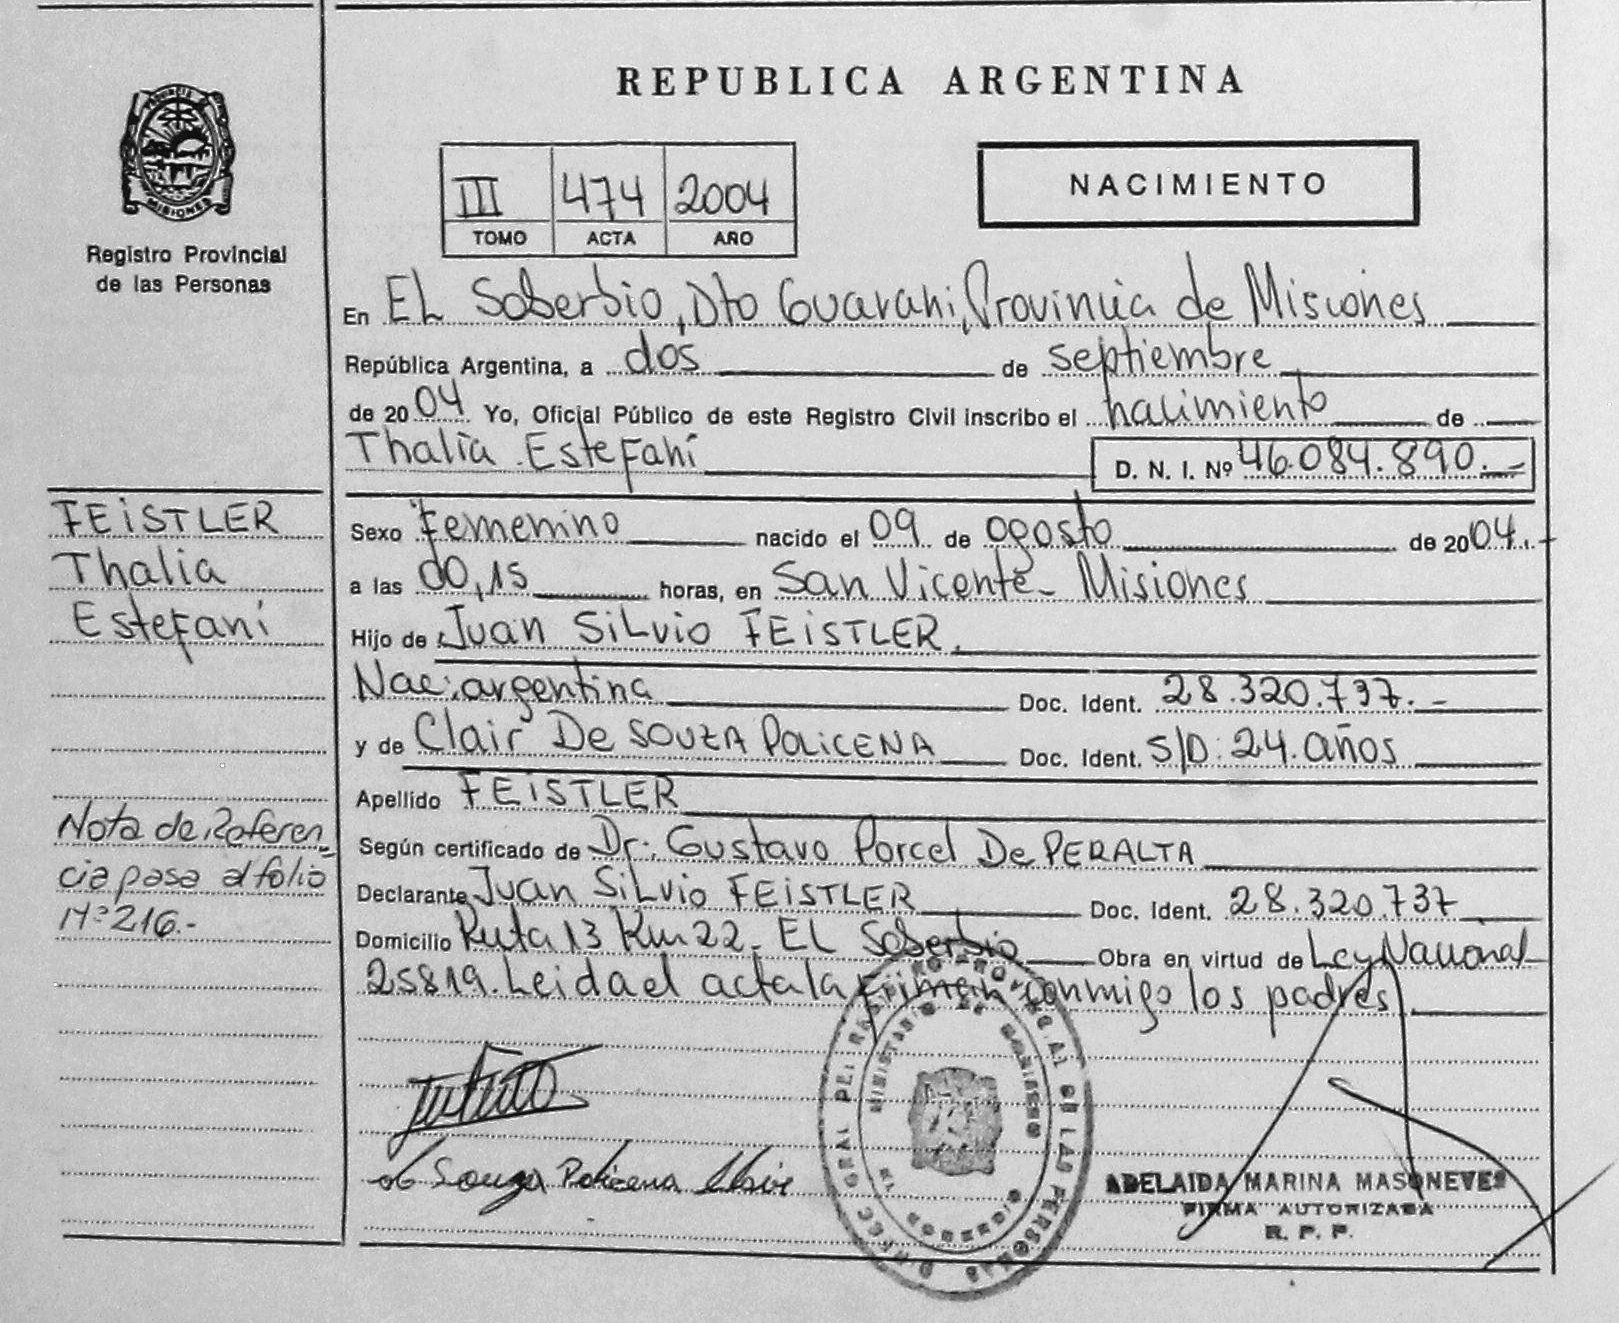 REPUBLICA ARGENTINA
MISIONES
Registro Provincial
de las Personas
III 474 2004
TOMO ACTA AÑO
NACIMIENTO
En EL Soberbio, Dto Guarani, Provincia de Misiones
República Argentina, a dos de septiembre
de 2004 Yo, Oficial Público de este Registro Civil inscribo el nacimiento de
Thalía Estefaní
D. N. I. Nº 46.084.890.-
FEISTLER
Thalia
Estefaní
Sexo Femenino nacido el 09 de agosto de 2004.
a las 00,15 horas, en San Vicente - Misiones
Hijo de Juan Silvio FEISTLER.
Nac: argentina Doc. Ident. 28.320.737.-
y de Clair De SOUZA POLICENA Doc. Ident. S/D: 24. años
Apellido FEISTLER
Según certificado de Dr: Gustavo Porcel De PERALTA
Declarante Juan Silvio FEISTLER Doc. Ident. 28.320.737
Domicilio Ruta 13 Km 22 - EL Soberbio Obra en virtud de Ley Nacional
25819. Leida el acta la firman conmigo los padres
Nota de Referen
cia pasa al folio
Nº 216.-
de Souza Policena Clair
ADELAIDA MARINA MASONEVES
FIRMA AUTORIZADA
R. P. P.